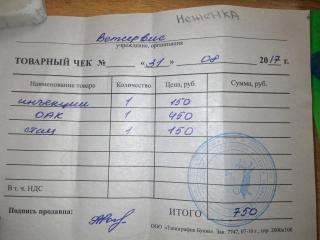 Неженка
Ветсервис
учреждение, организация
ТОВАРНЫЙ ЧЕК № «31» 08 2017 г.
Наименование товара Количество Цена, руб. Сумма, руб.
инъекции 1 150
ОАК 1 450
стол 1 150
В т. ч. НДС
Подпись продавца: ИТОГО 750
ООО «Типография Буква». Зак. 7747, 07-10 г., тир. 2000х100